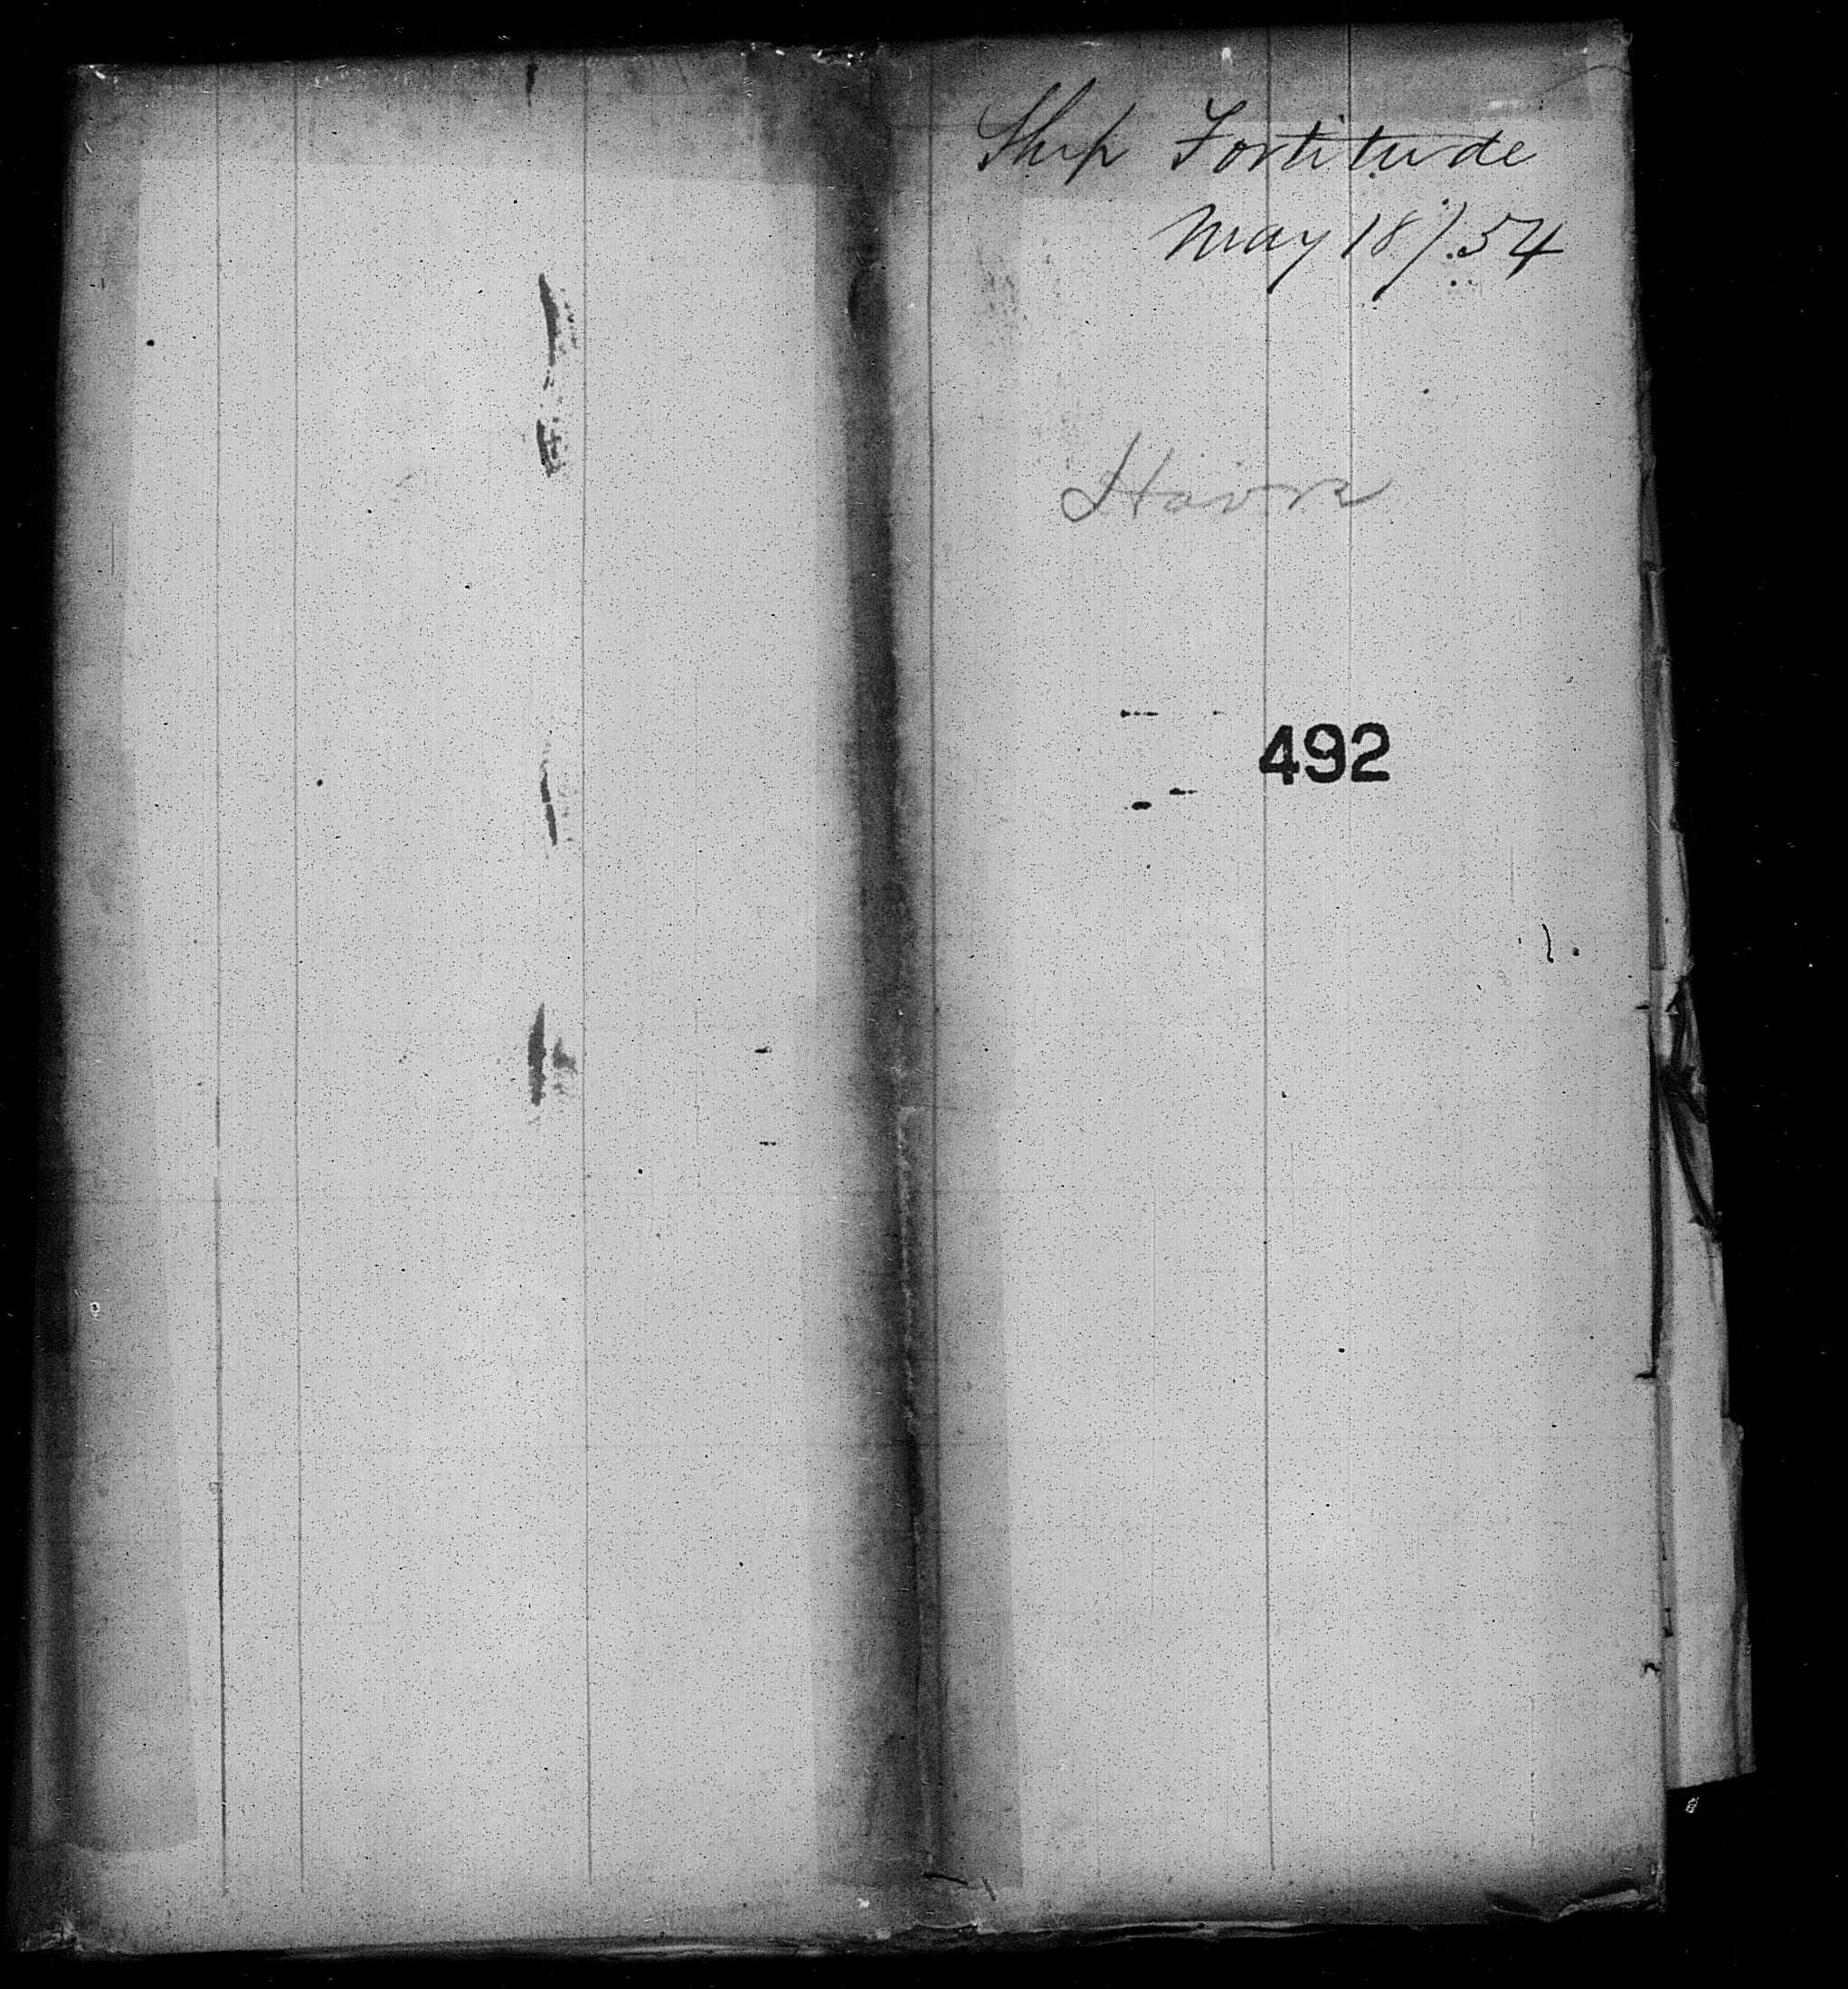 Ship Fortitude
May 18/54
Havre
492